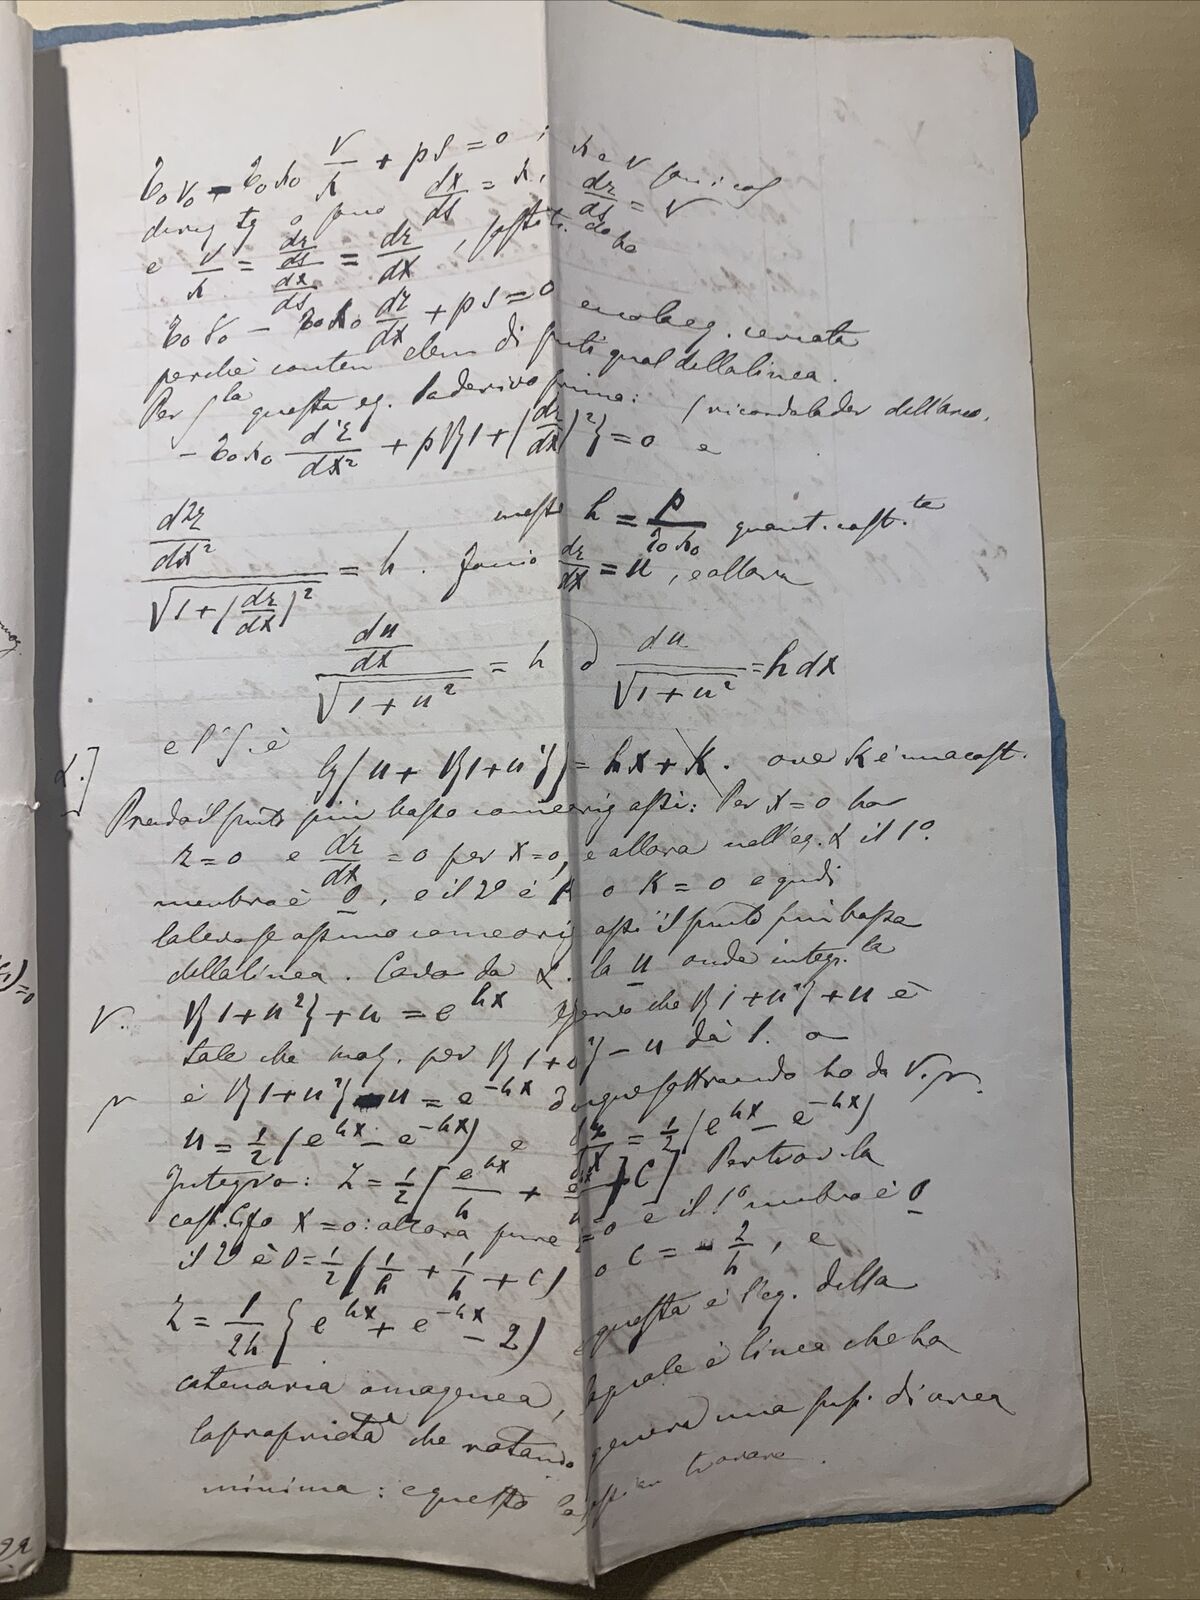 τ₀ν₀ - τ₀λ₀ ν/λ + ps = 0 ; λ e ν
tg o dx/ds = λ, dz/ds = ν
e ν/λ = (dz/ds)/(dx/ds) = dz/dx , ho
τ₀ν₀ - τ₀λ₀ dz/dx + ps = 0 eq. cercata
perchè conten elem di punti qual della linea.
Per questa eq. la derivo prima: (ricorda la der dell'arco.
- τ₀λ₀ d²z/dx² + p√{1+(dz/dx)²} = 0 e
messo h = p/τ₀λ₀ quant. cost.te
(d²z/dx²)/√(1+(dz/dx)²) = h . Faccio dz/dx = u , e allora
(du/dx)/√(1+u²) = h o du/√(1+u²) = h dx
e l'∫ è
α.] lg(u + √{1+u²}) = hx + K . ove K è una cost.
Prendo il punto più basso come orig assi: Per x = 0 ho
z = 0 e dz/dx = 0 per x = 0, e allora nell'eq. α il 1º
membro è 0, e il 2º è K o K = 0 e qudi
come orig assi il punto più basso
della linea . Cavo da α. la u onde integr. la
V. √{1+u²}+u = e^hx che √{1+u²}+u è
tale che mol. per √{1+u²}-u dà 1. o
μ è √{1+u²}-u = e^-hx dunque sottraendo ho da V. μ.
u = ½(e^hx - e^-hx) e dz/dx = ½(e^hx - e^-hx)
Integro: z = ½[e^hx/h + e^-hx/h + C] Per trov. la
cost. C fo x = 0: allora pure z = 0 e il 1º membro è 0
il 2º è 0 = ½(1/h + 1/h + C) o C = - 2/h , e
z = 1/2h {e^hx + e^-hx - 2) questa è l'eq. della
catenaria omogenea, la quale è linea che ha
la proprietà che rotando genera una sup. di area
minima : e questo trovare .